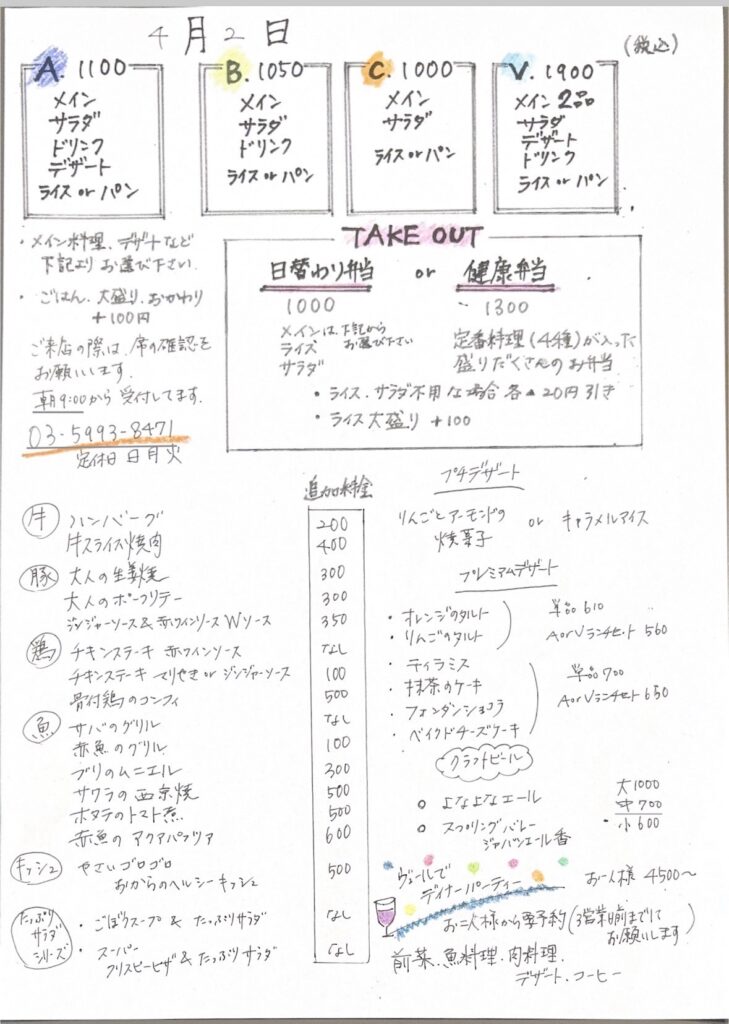 4月2日
(税込)
A. 1100
メイン
サラダ
ドリンク
デザート
ライス or パン
B. 1050
メイン
サラダ
ドリンク
ライス or パン
C. 1000
メイン
サラダ
ライス or パン
V. 1900
メイン 2品
サラダ
デザート
ドリンク
ライス or パン
・メイン料理、デザートなど
下記より お選び下さい。
・ごはん、大盛り、おかわり
+100円
ご来店の際は、席の確認を
お願いします。
朝9:00から 受付してます。
03-5993-8471
定休日 日月火
TAKE OUT
日替わり弁当 or 健康弁当
1000
メインは、下記から
お選び下さい
ライス
サラダ
1300
定番料理(4種)が入った
盛りだくさんのお弁当
・ライス、サラダ不用な場合 各▲20円引き
・ライス大盛り +100
追加料金
牛 ハンバーグ 200
牛スライス焼肉 400
豚 大人の生姜焼 300
大人のポークソテー 300
ジンジャーソース&赤ワインソース Wソース 350
鶏 チキンステーキ 赤ワインソース なし
チキンステーキ てりやき or ジンジャーソース 100
骨付鶏のコンフィ 500
魚 サバのグリル なし
赤魚のグリル 100
ブリのムニエル 300
サワラの西京焼 500
ホタテのトマト煮 500
赤魚の アクアパッツア 600
キッシュ やさいゴロゴロ
おからのヘルシーキッシュ 500
たっぷりサラダシリーズ
・ごぼうスープ & たっぷりサラダ なし
・スーパー
クリスピーピザ & たっぷりサラダ なし
プチデザート
りんごとアーモンドの
焼菓子 or キャラメルアイス
プレミアムデザート
・オレンジのタルト
・りんごのタルト
単品 610
A or Vランチセット 560
・ティラミス
・抹茶のケーキ
・フォンダンショコラ
・ベイクドチーズケーキ
単品 700
A or Vランチセット 650
クラフトビール
○ よなよなエール
○ スプリングバレー
ジャパンエール香
大1000
中 700
小 600
ヴェールで
ディナーパーティー
お一人様 4500〜
お二人様から要予約(3営業日前までに
お願いします)
前菜、魚料理、肉料理、
デザート、コーヒー